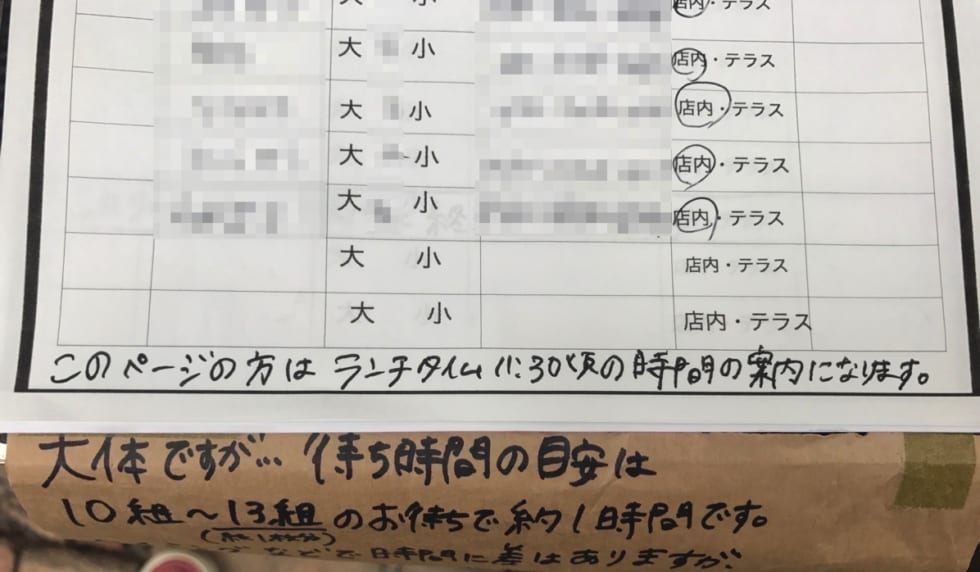 大 小 店内・テラス
大 小 店内・テラス
大 小 店内・テラス
大 小 店内・テラス
大 小 店内・テラス
大 小 店内・テラス
大 小 店内・テラス
このページの方は ランチタイム 11:30頃の時間の案内になります。
大体ですが… 待ち時間の目安は
10組～13組のお待ちで約1時間です。
などで時間に差はありますが、